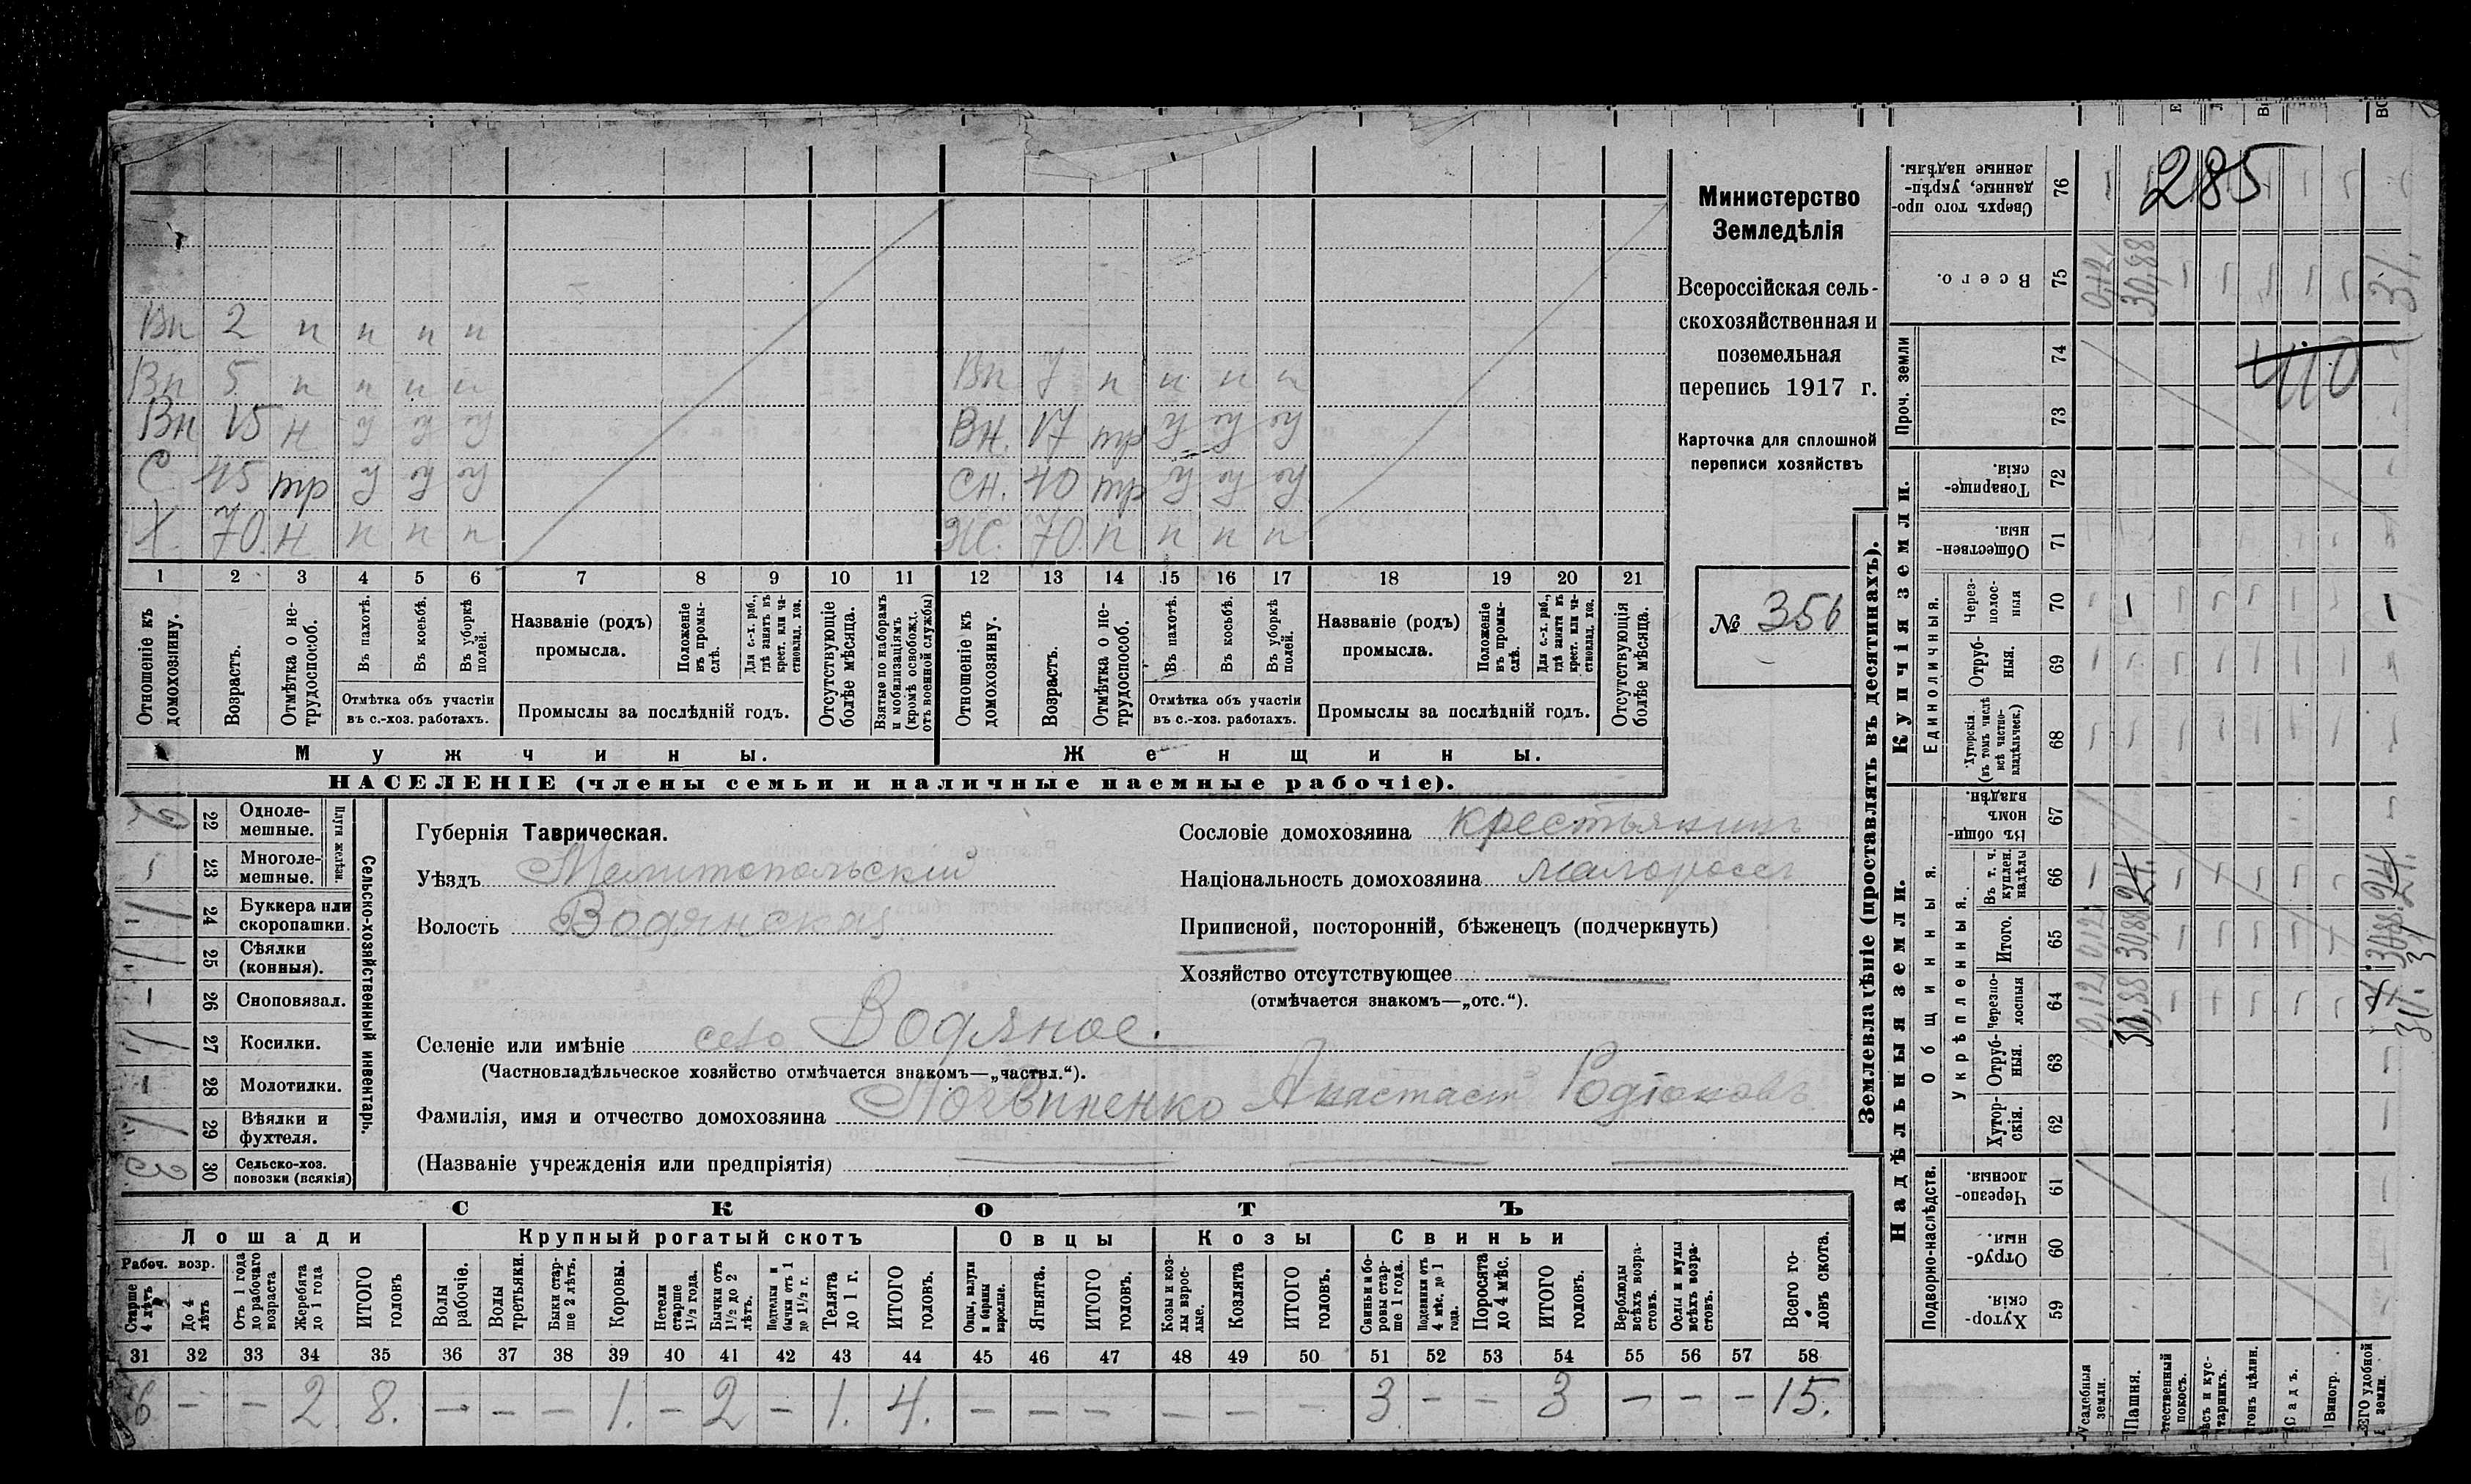 285
410
Вп 2 п п п п
Вп 5 п п п п
Вп 7 п п п п
Вн 15 н у у у
Вн. 17 тр у у у
С 45 тр у у у
сн. 40 тр у у у
Х. 70. н п п п
Ж. 70. п п п п
1 2 3 4 5 6 7 8 9 10 11 12 13 14 15 16 17 18 19 20 21
Отношеніе къ домохозяину.
Возрастъ.
Отмѣтка о нетрудоспособ.
Въ пахотѣ.
Въ косьбѣ.
Въ уборкѣ полей.
Отмѣтка объ участіи
въ с.-хоз. работахъ.
Названіе (родъ)
промысла.
Положеніе въ промыслѣ.
Для с.-х. раб., гдѣ занятъ въ крест. или частновлад. хоз.
Промыслы за послѣдній годъ.
Отсутствующіе болѣе мѣсяца.
Взятые по наборамъ и мобилизаціямъ (кромѣ освобожд. отъ военной службы)
Отношеніе къ домохозяину.
Возрастъ.
Отмѣтка о нетрудоспособ.
Въ пахотѣ.
Въ косьбѣ.
Въ уборкѣ полей.
Отмѣтка объ участіи
въ с.-хоз. работахъ.
Названіе (родъ)
промысла.
Положеніе въ промыслѣ.
Для с.-х. раб., гдѣ занята въ крест. или частновлад. хоз.
Промыслы за послѣдній годъ.
Отсутствующія болѣе мѣсяца.
Мужчины.
Женщины.
НАСЕЛЕНІЕ (члены семьи и наличные наемные рабочіе).
Министерство
Земледѣлія
Всероссійская сель-
скохозяйственная и
поземельная
перепись 1917 г.
Карточка для сплошной
переписи хозяйствъ
№ 356
Сельско-хозяйственный инвентарь.
Плуги желѣзн.
22 Одноле-
мешные.
23 Многоле-
мешные.
24 Буккера или
скоропашки.
25 Сѣялки
(конныя).
26 Сноповязал.
27 Косилки.
28 Молотилки.
29 Вѣялки и
фухтеля.
30 Сельско-хоз.
повозки (всякія)
Губернія Таврическая.
Уѣздъ Мелитопольскій
Волость Водянская
Сословіе домохозяина крестьянинъ
Національность домохозяина малороссъ
Приписной, посторонній, бѣженецъ (подчеркнуть)
Хозяйство отсутствующее
(отмѣчается знакомъ—„отс.“).
Селеніе или имѣніе село Водяное.
(Частновладѣльческое хозяйство отмѣчается знакомъ—„частвл.“).
Фамилія, имя и отчество домохозяина Логвиненко Анастасъ Родіоновъ
(Названіе учрежденія или предпріятія)
СКОТЪ
Лошади
Крупный рогатый скотъ
Овцы
Козы
Свиньи
Рабоч. возр.
Старше 4 лѣтъ
До 4 лѣтъ
Отъ 1 года до рабочаго возраста
Жеребята до 1 года
ИТОГО головъ
Волы рабочіе.
Волы третьяки.
Быки старше 2 лѣтъ.
Коровы.
Нетели старше 1½ года.
Бычки отъ 1½ до 2 лѣтъ.
Подтелки и бычки отъ 1 до 1½ г.
Телята до 1 г.
ИТОГО головъ.
Овцы, валухи и бараны взрослые.
Ягнята.
ИТОГО головъ.
Козы и козлы взрослые.
Козлята
ИТОГО головъ.
Свиньи и боровы старше 1 года.
Подсвинки отъ 4 мѣс. до 1 года.
Поросята до 4 мѣс.
ИТОГО головъ.
Верблюды всѣхъ возрастовъ.
Ослы и мулы всѣхъ возрастовъ.
Всего головъ скота.
31 32 33 34 35 36 37 38 39 40 41 42 43 44 45 46 47 48 49 50 51 52 53 54 55 56 57 58
6 — — 2. 8. — — — 1. — 2 — 1. 4. — — — — — — 3 — — 3 — — — 15.
Землевладѣніе (проставлять въ десятинахъ).
Купчія земли.
Надѣльныя земли.
Сверхъ того проданные, укрѣпленные надѣлы. 76
Всего. 75 0,12 30,88 31.
Проч. земли 74 73
Товарищескія. 72
Общественныя. 71
Единоличныя.
Черезполосныя 70
Отрубныя. 69
Хуторскія (въ томъ числѣ всѣ частновладѣльческ.) 68
Общинныя.
Въ общинномъ владѣн. 67
Укрѣпленныя.
Въ т. ч. куплен. надѣлы 66
Итого. 65 0,12 30,88
Черезполосныя 64 0,12 30,88
Отрубныя. 63
Хуторскія. 62
Подворно-наслѣдств.
Черезполосныя. 61
Отрубныя. 60
Хуторскія. 59
Усадебныя земли.
Пашня.
Естественный покосъ.
Лѣсъ и кустарникъ.
Выгонъ цѣлин.
Садъ.
Виногр.
ВСЕГО удобной земли.